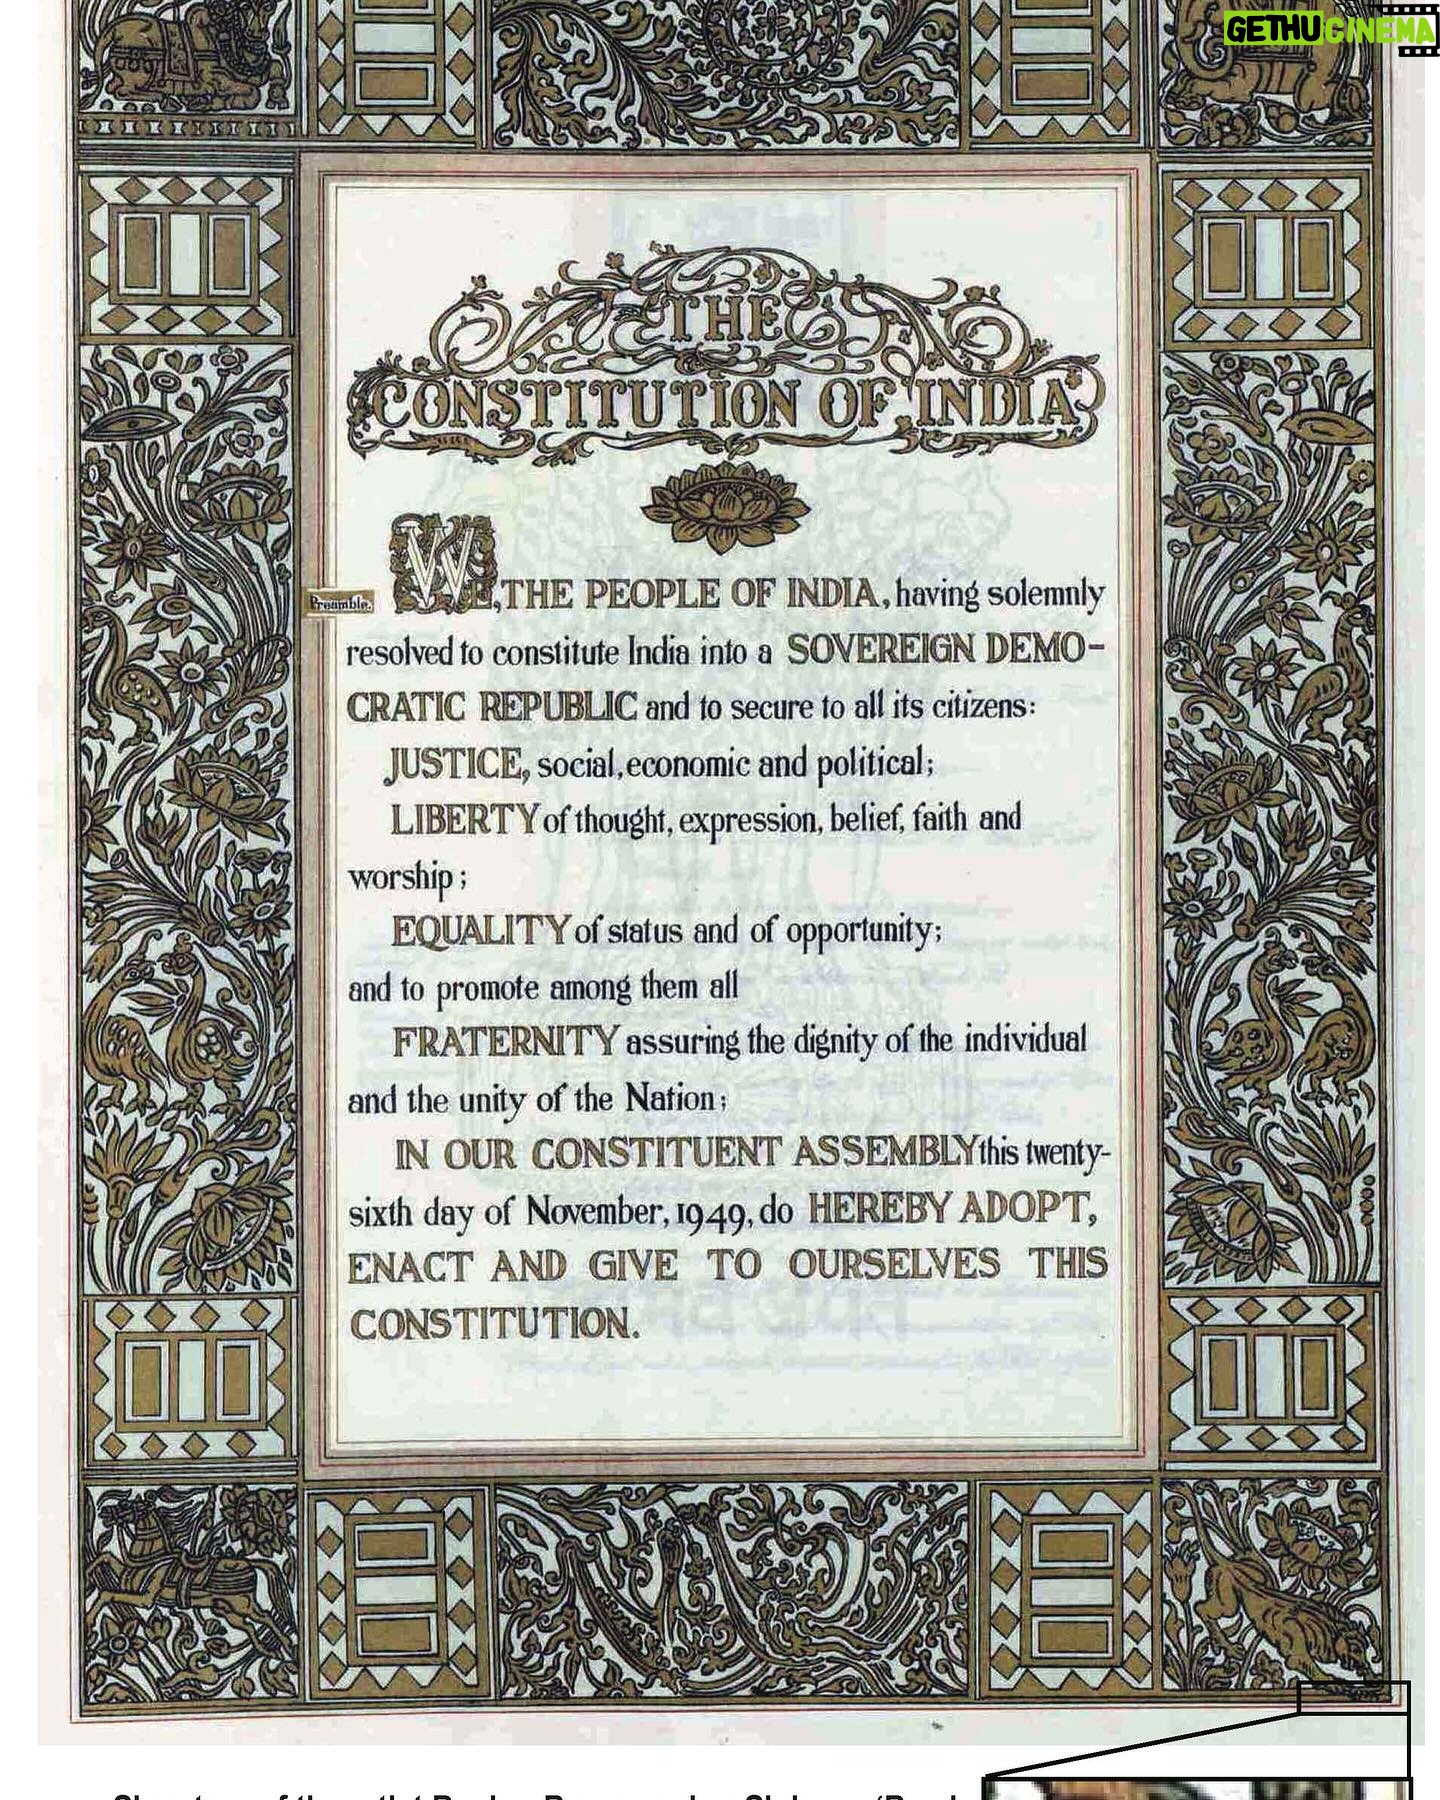 GETHU CINEMA
THE
CONSTITUTION OF INDIA
Preamble.
WE, THE PEOPLE OF INDIA, having solemnly
resolved to constitute India into a SOVEREIGN DEMO-
CRATIC REPUBLIC and to secure to all its citizens:
JUSTICE, social, economic and political;
LIBERTY of thought, expression, belief, faith and
worship;
EQUALITY of status and of opportunity;
and to promote among them all
FRATERNITY assuring the dignity of the individual
and the unity of the Nation;
IN OUR CONSTITUENT ASSEMBLY this twenty-
sixth day of November, 1949, do HEREBY ADOPT,
ENACT AND GIVE TO OURSELVES THIS
CONSTITUTION.